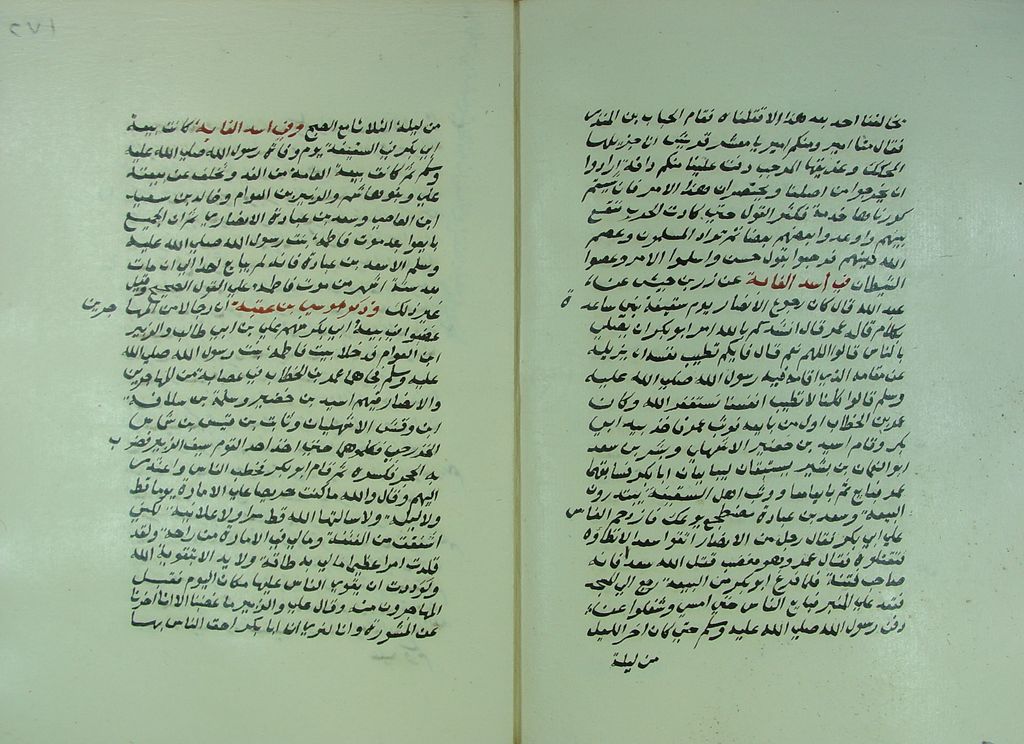 يخالفنا احد بعد هذا الا قتلناه فقام الحباب بن المنذر
فقال منا امير ومنكم امير يا معشر قريش انا جذيلها
المحكك وعذيقها المرجب دفت علينا منكم دافة ارادوا
ان يخرجونا من اصلنا ويختصرون بهذا الامر فان شيتم
كررناها خدعة فكثر القول حتى كادت الحرب تقع
بينهم واوعد وا بعضهم بعضا ثم تراد المسلمون وعصم
الله دينهم فرجعوا بقول حسن واسلموا الامر وعصوا
الشيطان وفي أسد الغابة عن زر بن حبيش عن
عبد الله قال كان رجوع الانصار يوم سقيفة بني ساعدة
بكلام قاله عمر قال انشدكم بالله امر ابو بكر ان يصلي
بالناس قالوا اللهم نعم قال فايكم تطيب نفسه ان يزيله
عن مقامه الذي اقامه فيه رسول الله صلى الله عليه
وسلم قالوا كلنا لا تطيب انفسنا نستغفر الله وكان
عمر بن الخطاب اول من بايعه فوثب عمر فاخذ بيد ابي
بكر وقام اسيد بن حضير الاشهلي وبشر بن سعد
ابو النعمان بن بشير يستبقان ليبايعان ابا بكر فسابقهما
عمر فبايع ثم بايعاه معا ووثب اهل السقيفة يبتدرون
البيعة وسعد بن عبادة مضطجع يوعك فازدحم الناس
على ابي بكر فقال رجل من الانصار اتقوا سعدا لا تطاوه
فتقتلوه فقال عمر وهو مغضب قتل الله سعدا فانه
صاحب فتنة فلما فرغ ابو بكر من البيعة رجع الى المسجد
فقعد على المنبر فبايع الناس حتى امسى وشغلوا عن
دفن رسول الله صلى الله عليه وسلم حتى كان اخر الليل
من ليلة
من ليلة الثلاثا مع الصبح وفي اسد الغابة كانت بيعة
ابي بكر في السقيفة يوم وفاة رسول الله صلى الله عليه
وسلم ثم كانت بيعة العامة من الغد وتخلف عن بيعته
علي وبنو هاشم والزبير بن العوام وخالد بن سعيد
ابن العاصي وسعد بن عبادة الانصاري ثم ان الجميع
بايعوا بعد موت فاطمة بنت رسول الله صلى الله عليه
وسلم الا سعد بن عبادة فانه لم يبايع لاحد الى ان مات
بعد ستة اشهر من موت فاطمة على القول الصحيح وقيل
غير ذلك وذكر موسى بن عقبة أن رجالا من المهاجرين
غضبوا في بيعة ابي بكر منهم علي بن ابي طالب والزبير
ابن العوام فدخلا بيت فاطمة بنت رسول الله صلى الله
عليه وسلم فجاهما عمر بن الخطاب في عصابة من المهاجرين
والانصار فيهم اسيد بن حضير وسلمة بن سلامة
ابن وقش الاشهليان وثابت بن قيس بن شماس
الخزرجي فكلماهما حتى اخذ احد القوم سيف الزبير فضرب
به الحجر فكسره ثم قام ابو بكر فخطب الناس واعتذر
اليهم وقال والله ما كنت حريصا على الامارة يوما قط
ولا ليلة ولا سالتها الله قط سرا ولا علانية لكني
اشفقت من الفتنة ومالي في الامارة من راحة ولقد
قلدت امرا عظيما مالي به طاقة ولا يد الا بتقوية الله
ولوددت ان يقوي الناس عليها مكان اليوم فقبل
المهاجرون منه وقال علي والزبير ما غضبنا الا انا اخرنا
عن المشورة وانا لنرى ان ابا بكر احق الناس بها